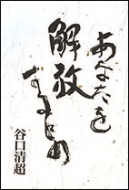 あなたを
解放
するための
谷口清超